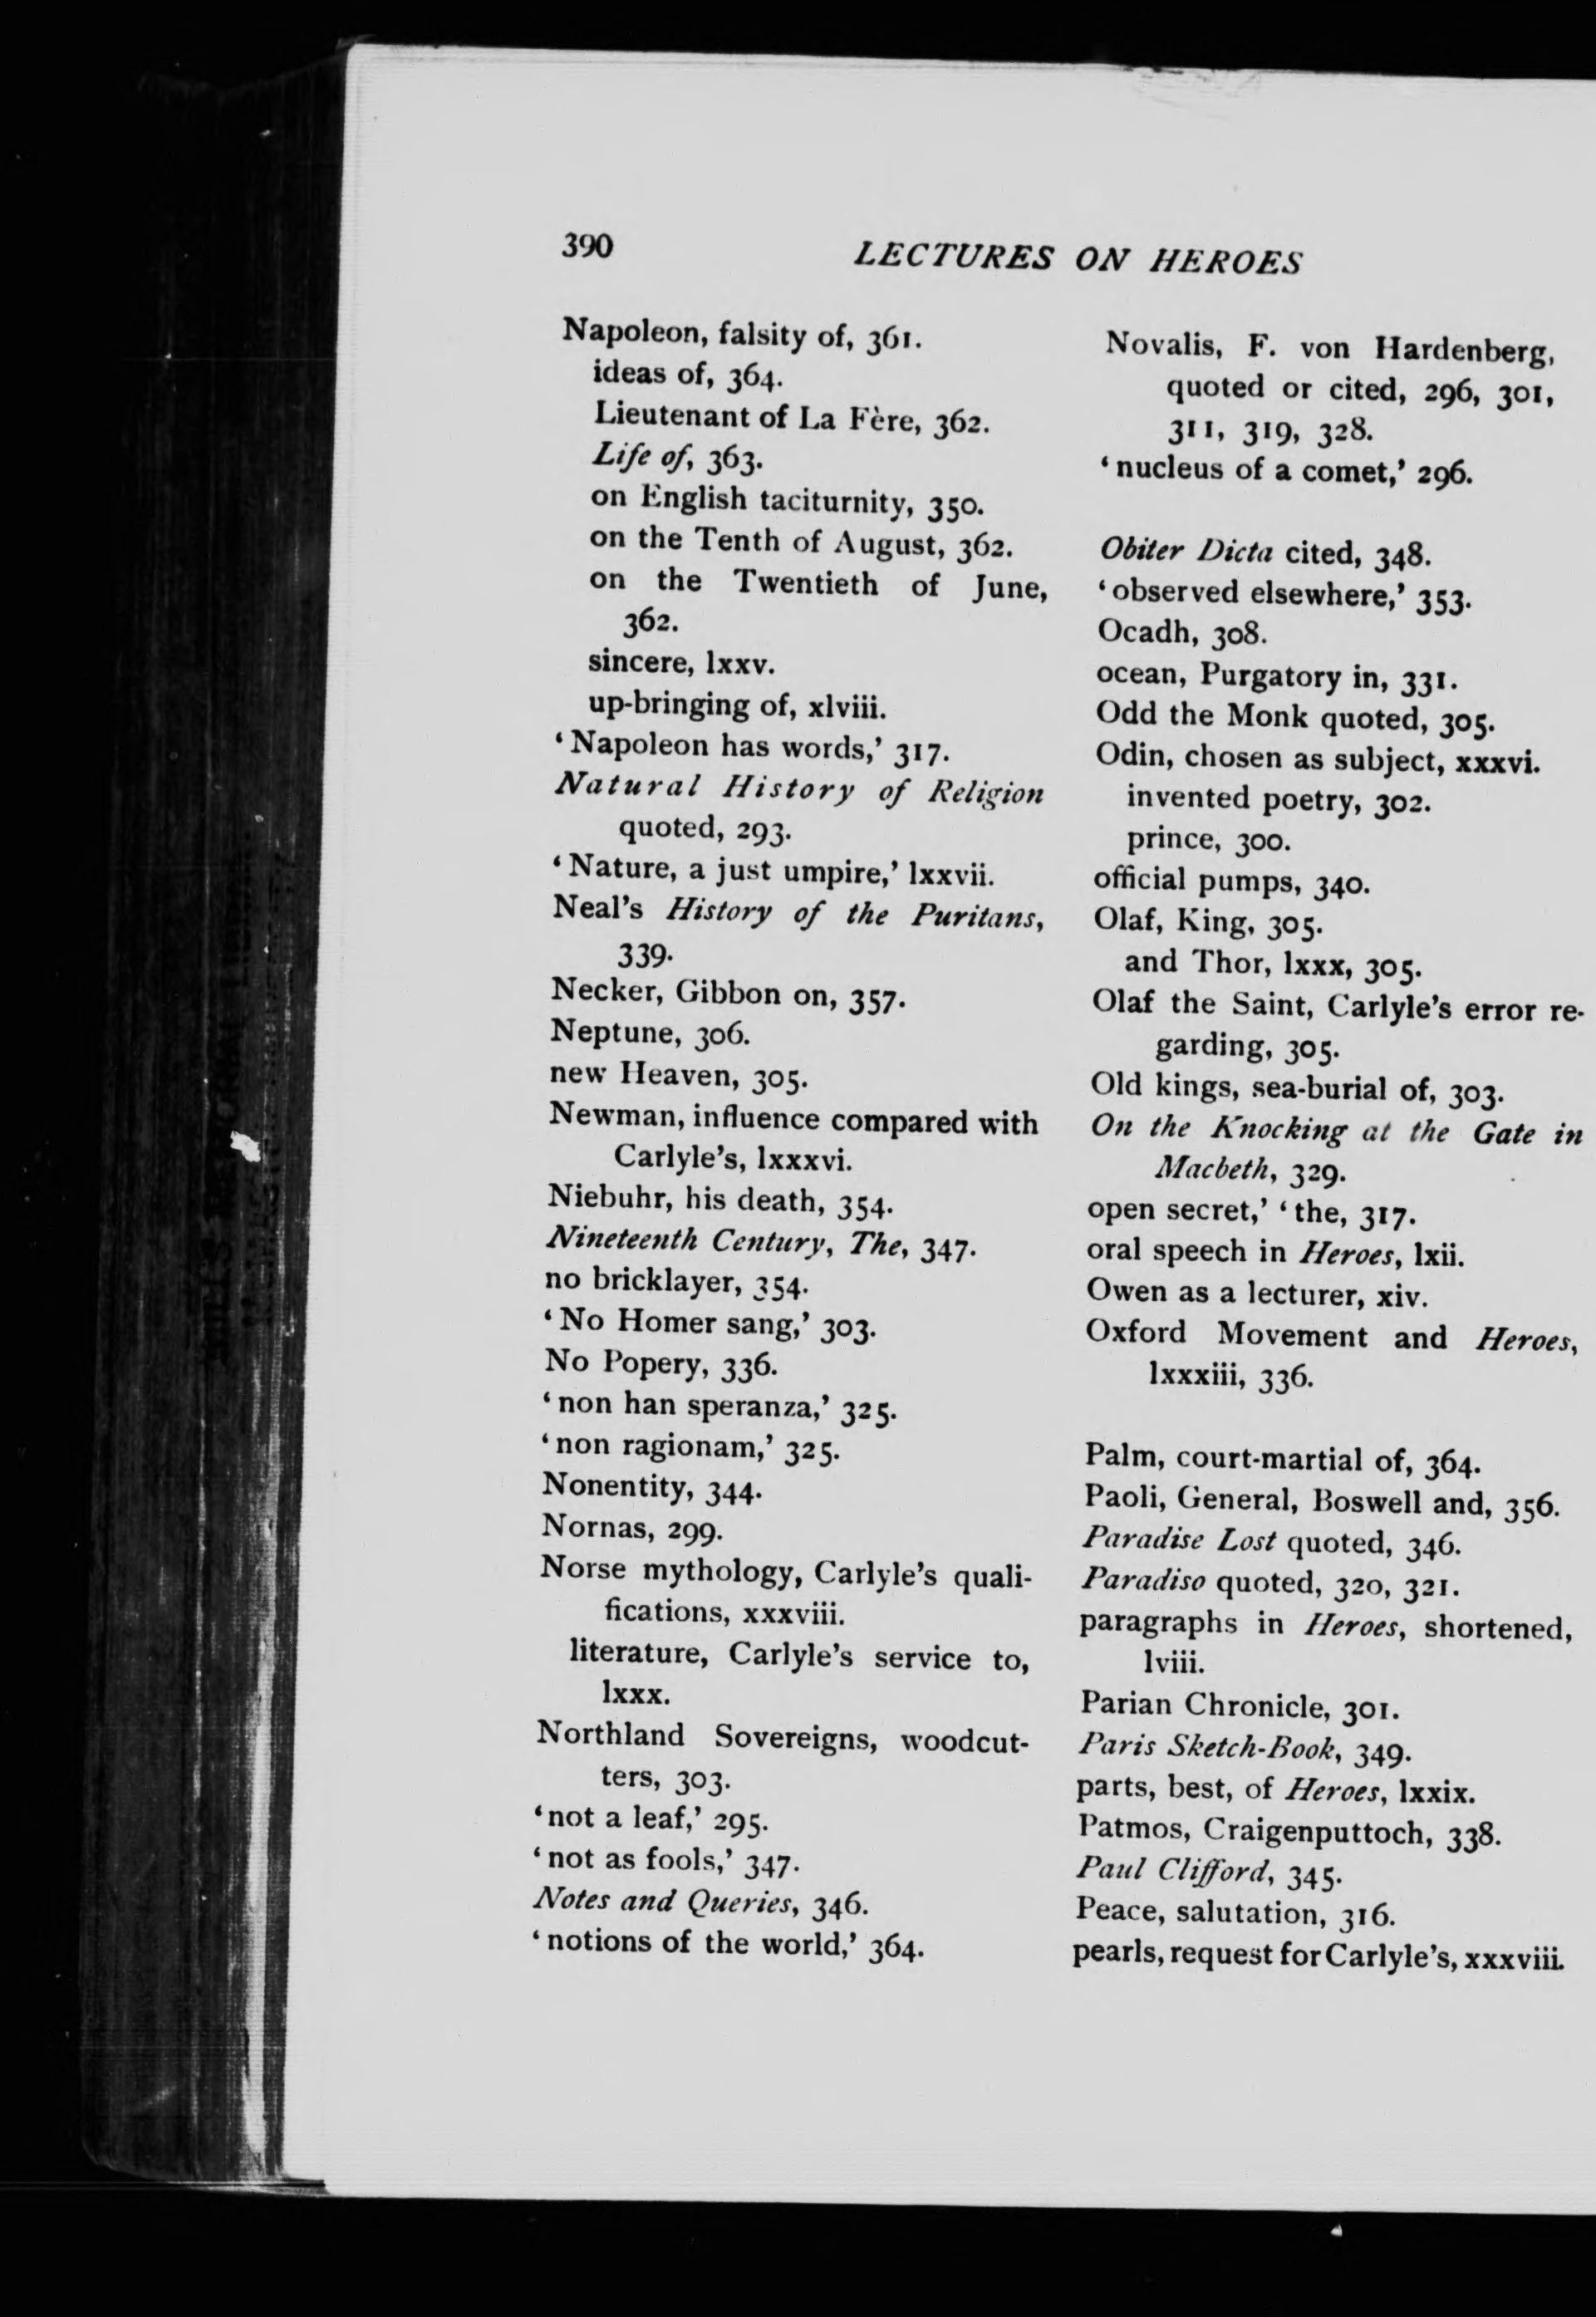 390
LECTURES ON HEROES
Napoleon, falsity of, 361.
ideas of, 364.
Lieutenant of La Fère, 362.
Life of, 363.
on English taciturnity, 350.
on the Tenth of August, 362.
on the Twentieth of June,
362.
sincere, lxxv.
up-bringing of, xlviii.
‘Napoleon has words,’ 317.
Natural History of Religion
quoted, 293.
‘Nature, a just umpire,’ lxxvii.
Neal’s History of the Puritans,
339.
Necker, Gibbon on, 357.
Neptune, 306.
new Heaven, 305.
Newman, influence compared with
Carlyle’s, lxxxvi.
Niebuhr, his death, 354.
Nineteenth Century, The, 347.
no bricklayer, 354.
‘No Homer sang,’ 303.
No Popery, 336.
‘non han speranza,’ 325.
‘non ragionam,’ 325.
Nonentity, 344.
Nornas, 299.
Norse mythology, Carlyle’s quali-
fications, xxxviii.
literature, Carlyle’s service to,
lxxx.
Northland Sovereigns, woodcut-
ters, 303.
‘not a leaf,’ 295.
‘not as fools,’ 347.
Notes and Queries, 346.
‘notions of the world,’ 364.
Novalis, F. von Hardenberg,
quoted or cited, 296, 301,
311, 319, 328.
‘nucleus of a comet,’ 296.
Obiter Dicta cited, 348.
‘observed elsewhere,’ 353.
Ocadh, 308.
ocean, Purgatory in, 331.
Odd the Monk quoted, 305.
Odin, chosen as subject, xxxvi.
invented poetry, 302.
prince, 300.
official pumps, 340.
Olaf, King, 305.
and Thor, lxxx, 305.
Olaf the Saint, Carlyle’s error re-
garding, 305.
Old kings, sea-burial of, 303.
On the Knocking at the Gate in
Macbeth, 329.
open secret,’ ‘the, 317.
oral speech in Heroes, lxii.
Owen as a lecturer, xiv.
Oxford Movement and Heroes,
lxxxiii, 336.
Palm, court-martial of, 364.
Paoli, General, Boswell and, 356.
Paradise Lost quoted, 346.
Paradiso quoted, 320, 321.
paragraphs in Heroes, shortened,
lviii.
Parian Chronicle, 301.
Paris Sketch-Book, 349.
parts, best, of Heroes, lxxix.
Patmos, Craigenputtoch, 338.
Paul Clifford, 345.
Peace, salutation, 316.
pearls, request for Carlyle’s, xxxviii.